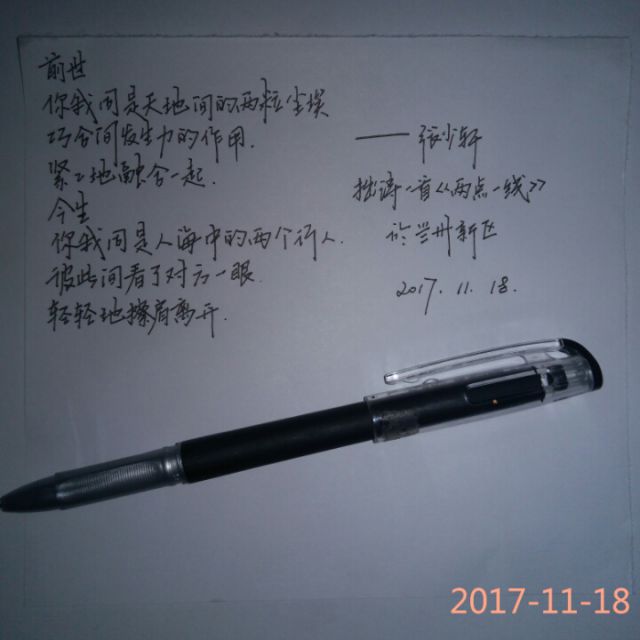 前世
你我同是天地间的两粒尘埃
巧合间发生力的作用.
紧紧地融合一起.
今生
你我同是人海中的两个行人.
彼此间看了对方一眼
轻轻地擦肩离开.
——张少轩
拙诗一首《两点一线》
于兰州新区
2017.11.18.
2017-11-18